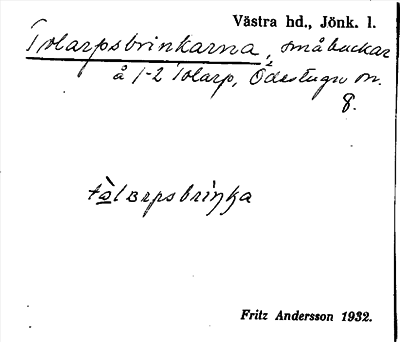 Västra hd., Jönk. l.
Tolarpsbrinkarna, småbackar
å 1-2 Tolarp, Ödestugu sn.
8.
Fritz Andersson 1932.